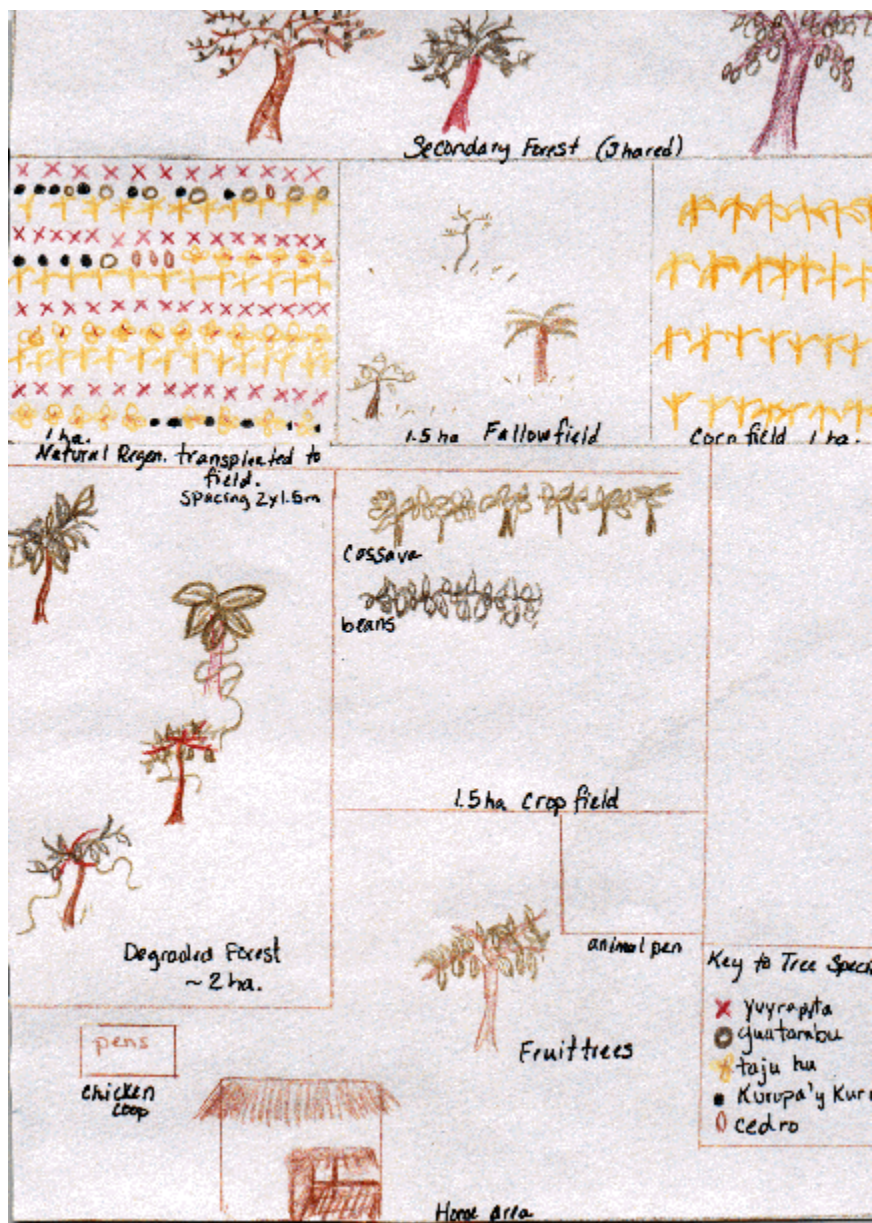 Secondary Forest (Shared)
1 ha.
Natural Regen. transplanted to
field.
Spacing 2x1.5m
1.5 ha Fallow field
Corn field 1 ha.
Cassava
beans
1.5 ha Crop field
Degraded Forest
~ 2 ha.
animal pen
Fruit trees
pens
chicken
coop
Home Area
Key to Tree Speci
yvyrapyta
guatambu
taju hu
Kurupa'y Kuru
cedro